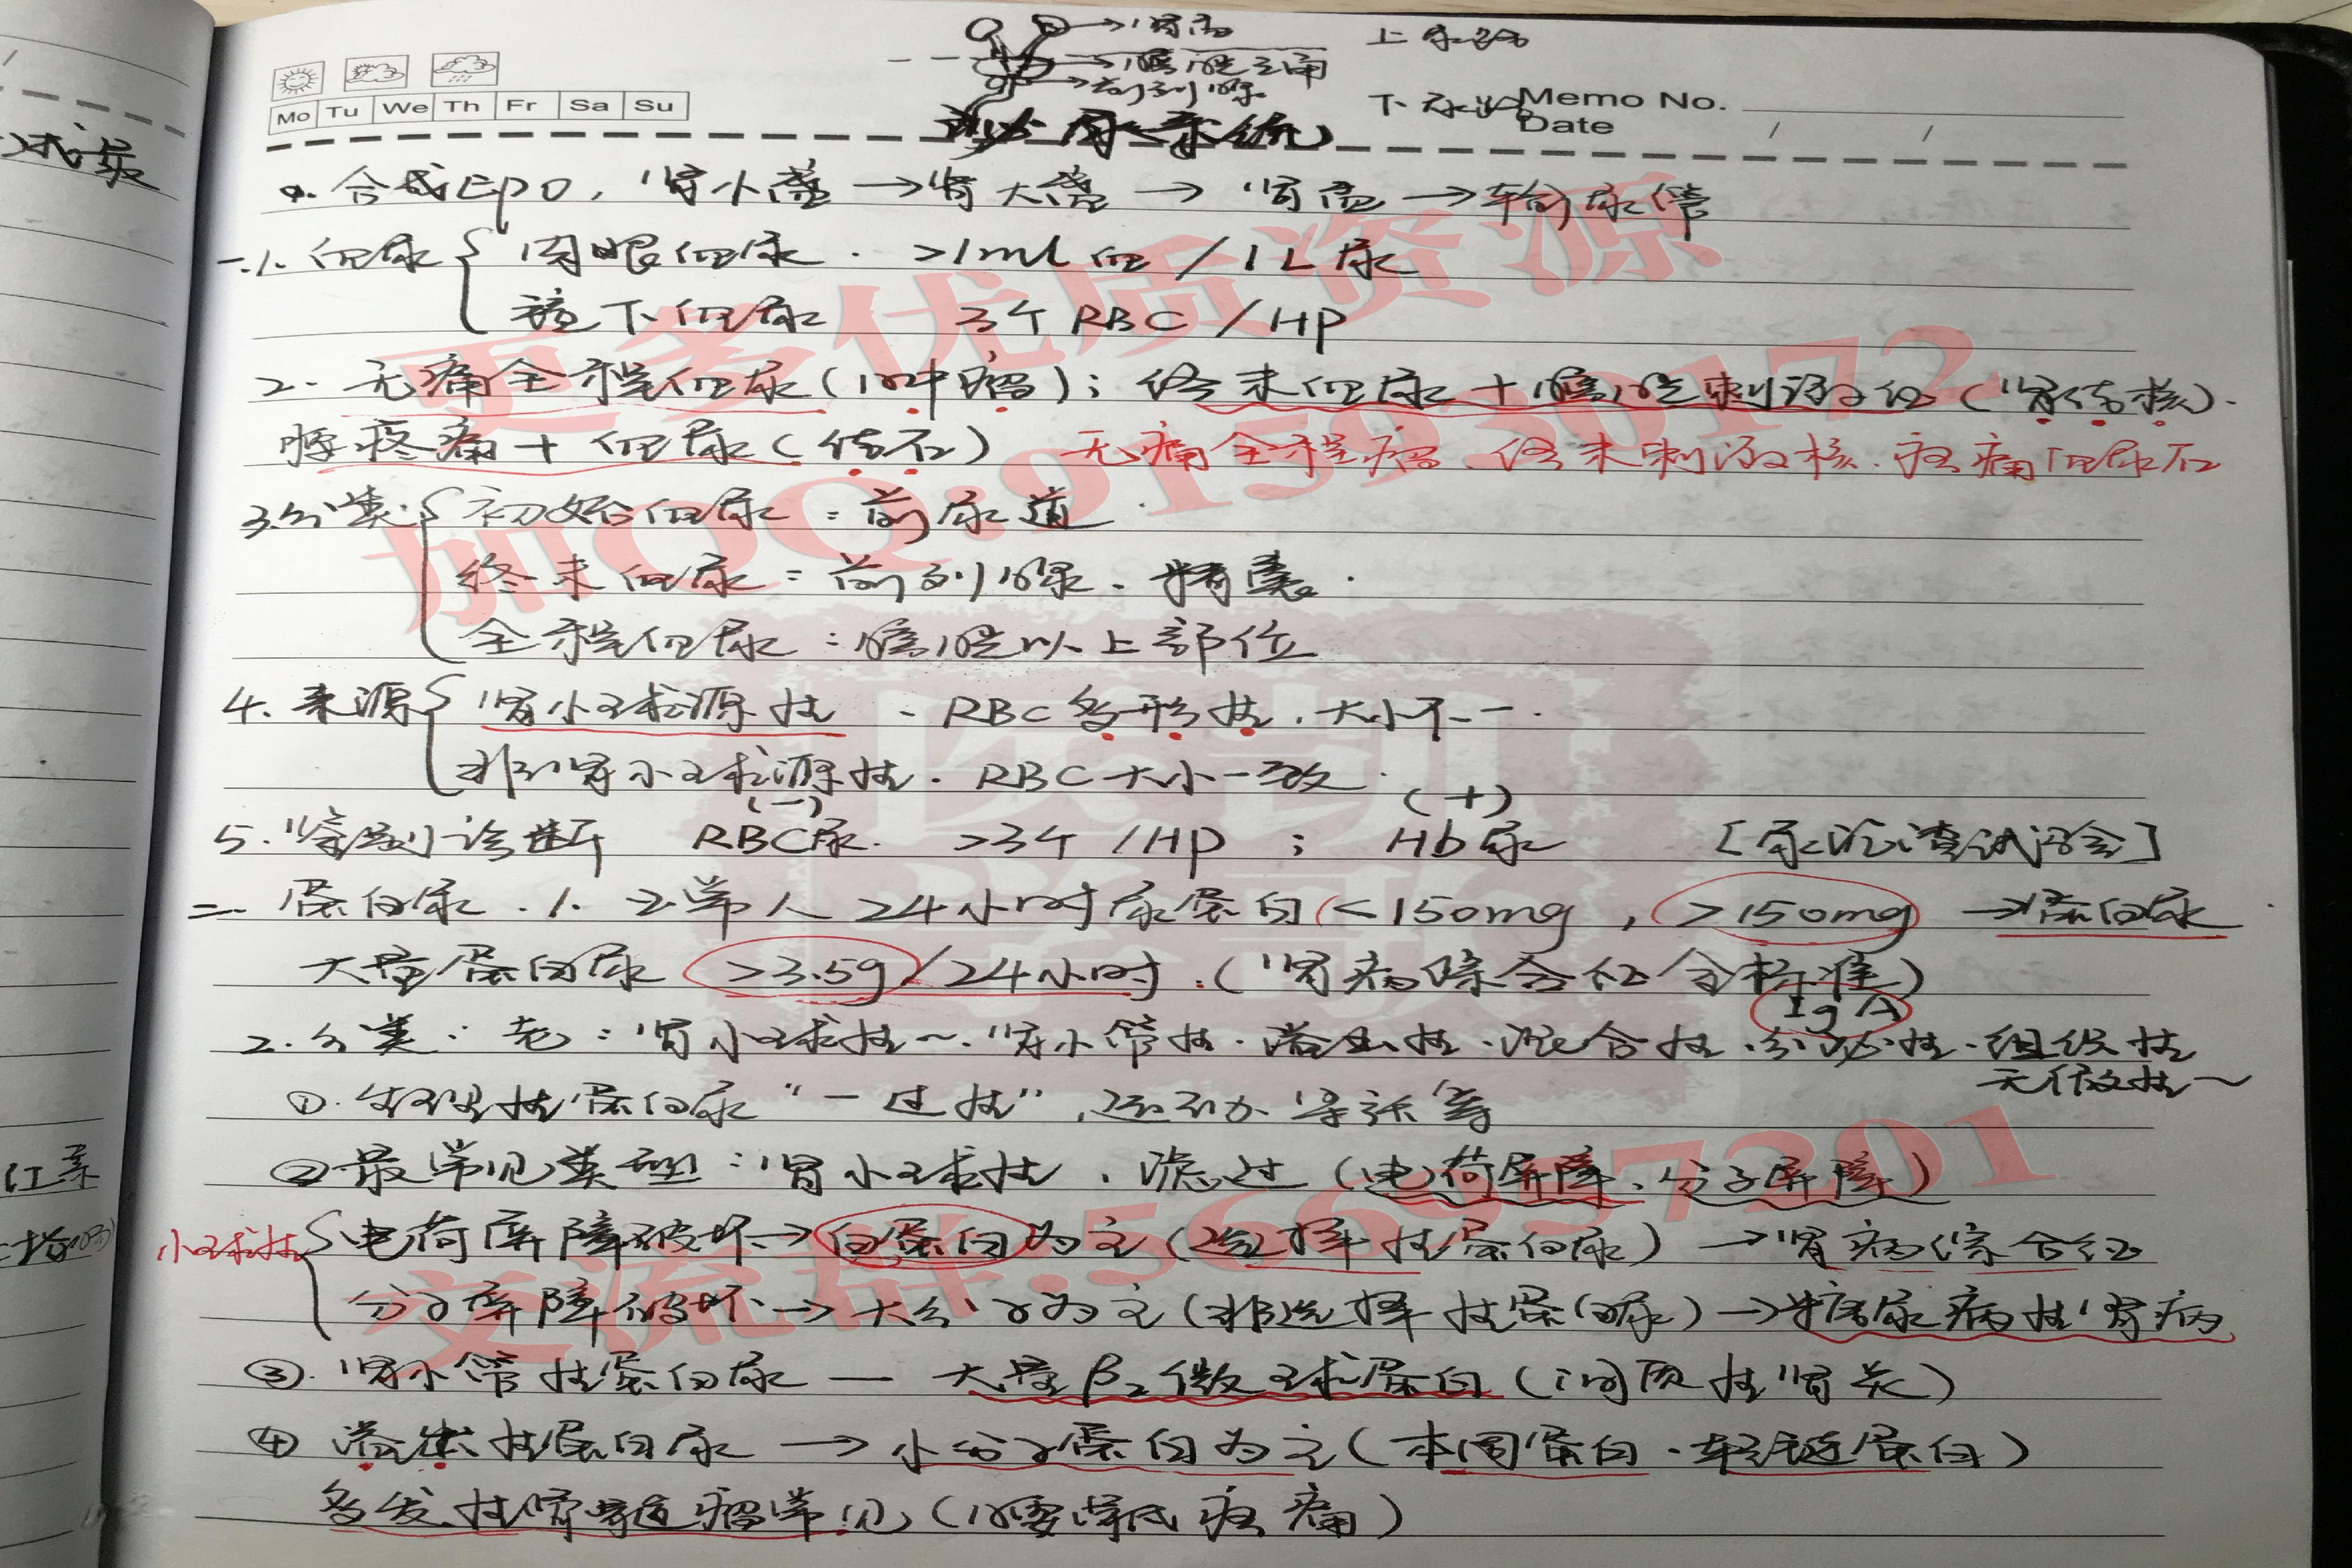 肾盂
上尿路
膀胱三角
前列腺
下尿路
Memo No.
Date / /
Mo Tu We Th Fr Sa Su
泌尿系统
合成EPO, 肾小盏→肾大盏→肾盂→输尿管
一.1. 血尿 { 肉眼血尿. >1ml血/1L尿
镜下血尿 3个RBC/HP
2. 无痛全程血尿(肿瘤); 终末血尿+膀胱刺激征(肾结核).
疼痛+血尿(结石) 无痛全程瘤、终末刺激核、疼痛血尿石
3.分类. { 初始血尿: 前尿道.
终末血尿: 前列腺、精囊.
全程血尿: 膀胱以上部位
4. 来源 { 肾小球源性 、RBC多形性, 大小不一.
非肾小球源性. RBC大小一致.
(-) (+)
5. 鉴别诊断 RBC尿. >3个/HP ; Hb尿 [尿沉渣试验]
二. 蛋白尿. 1. 正常人24小时尿蛋白<150mg, >150mg →蛋白尿
大量蛋白尿 >3.5g/24小时.(肾病综合征金标准)
IgA
2. 分类: 老: 肾小球性~. 肾小管性. 溢出性. 混合性. 分泌性. 组织性
无假性~
①. 生理性蛋白尿“一过性”, 运动 等
②最常见类型: 肾小球性, 滤过(电荷屏障、分子屏障)
小球性 { 电荷屏障破坏→白蛋白为主(选择性蛋白尿)→肾病综合征
分子屏障破坏→大分子为主(非选择性蛋白尿)→糖尿病性肾病
③. 肾小管性蛋白尿 — 大量β₂微球蛋白(间质性肾炎)
④ 溢出性蛋白尿 →小分子蛋白为主(本周蛋白. 轻链蛋白)
多发性骨髓瘤常见(腰骶疼痛)
更多优质资源
加QQ:915930172
医凯
笔歌
交流群:566957201